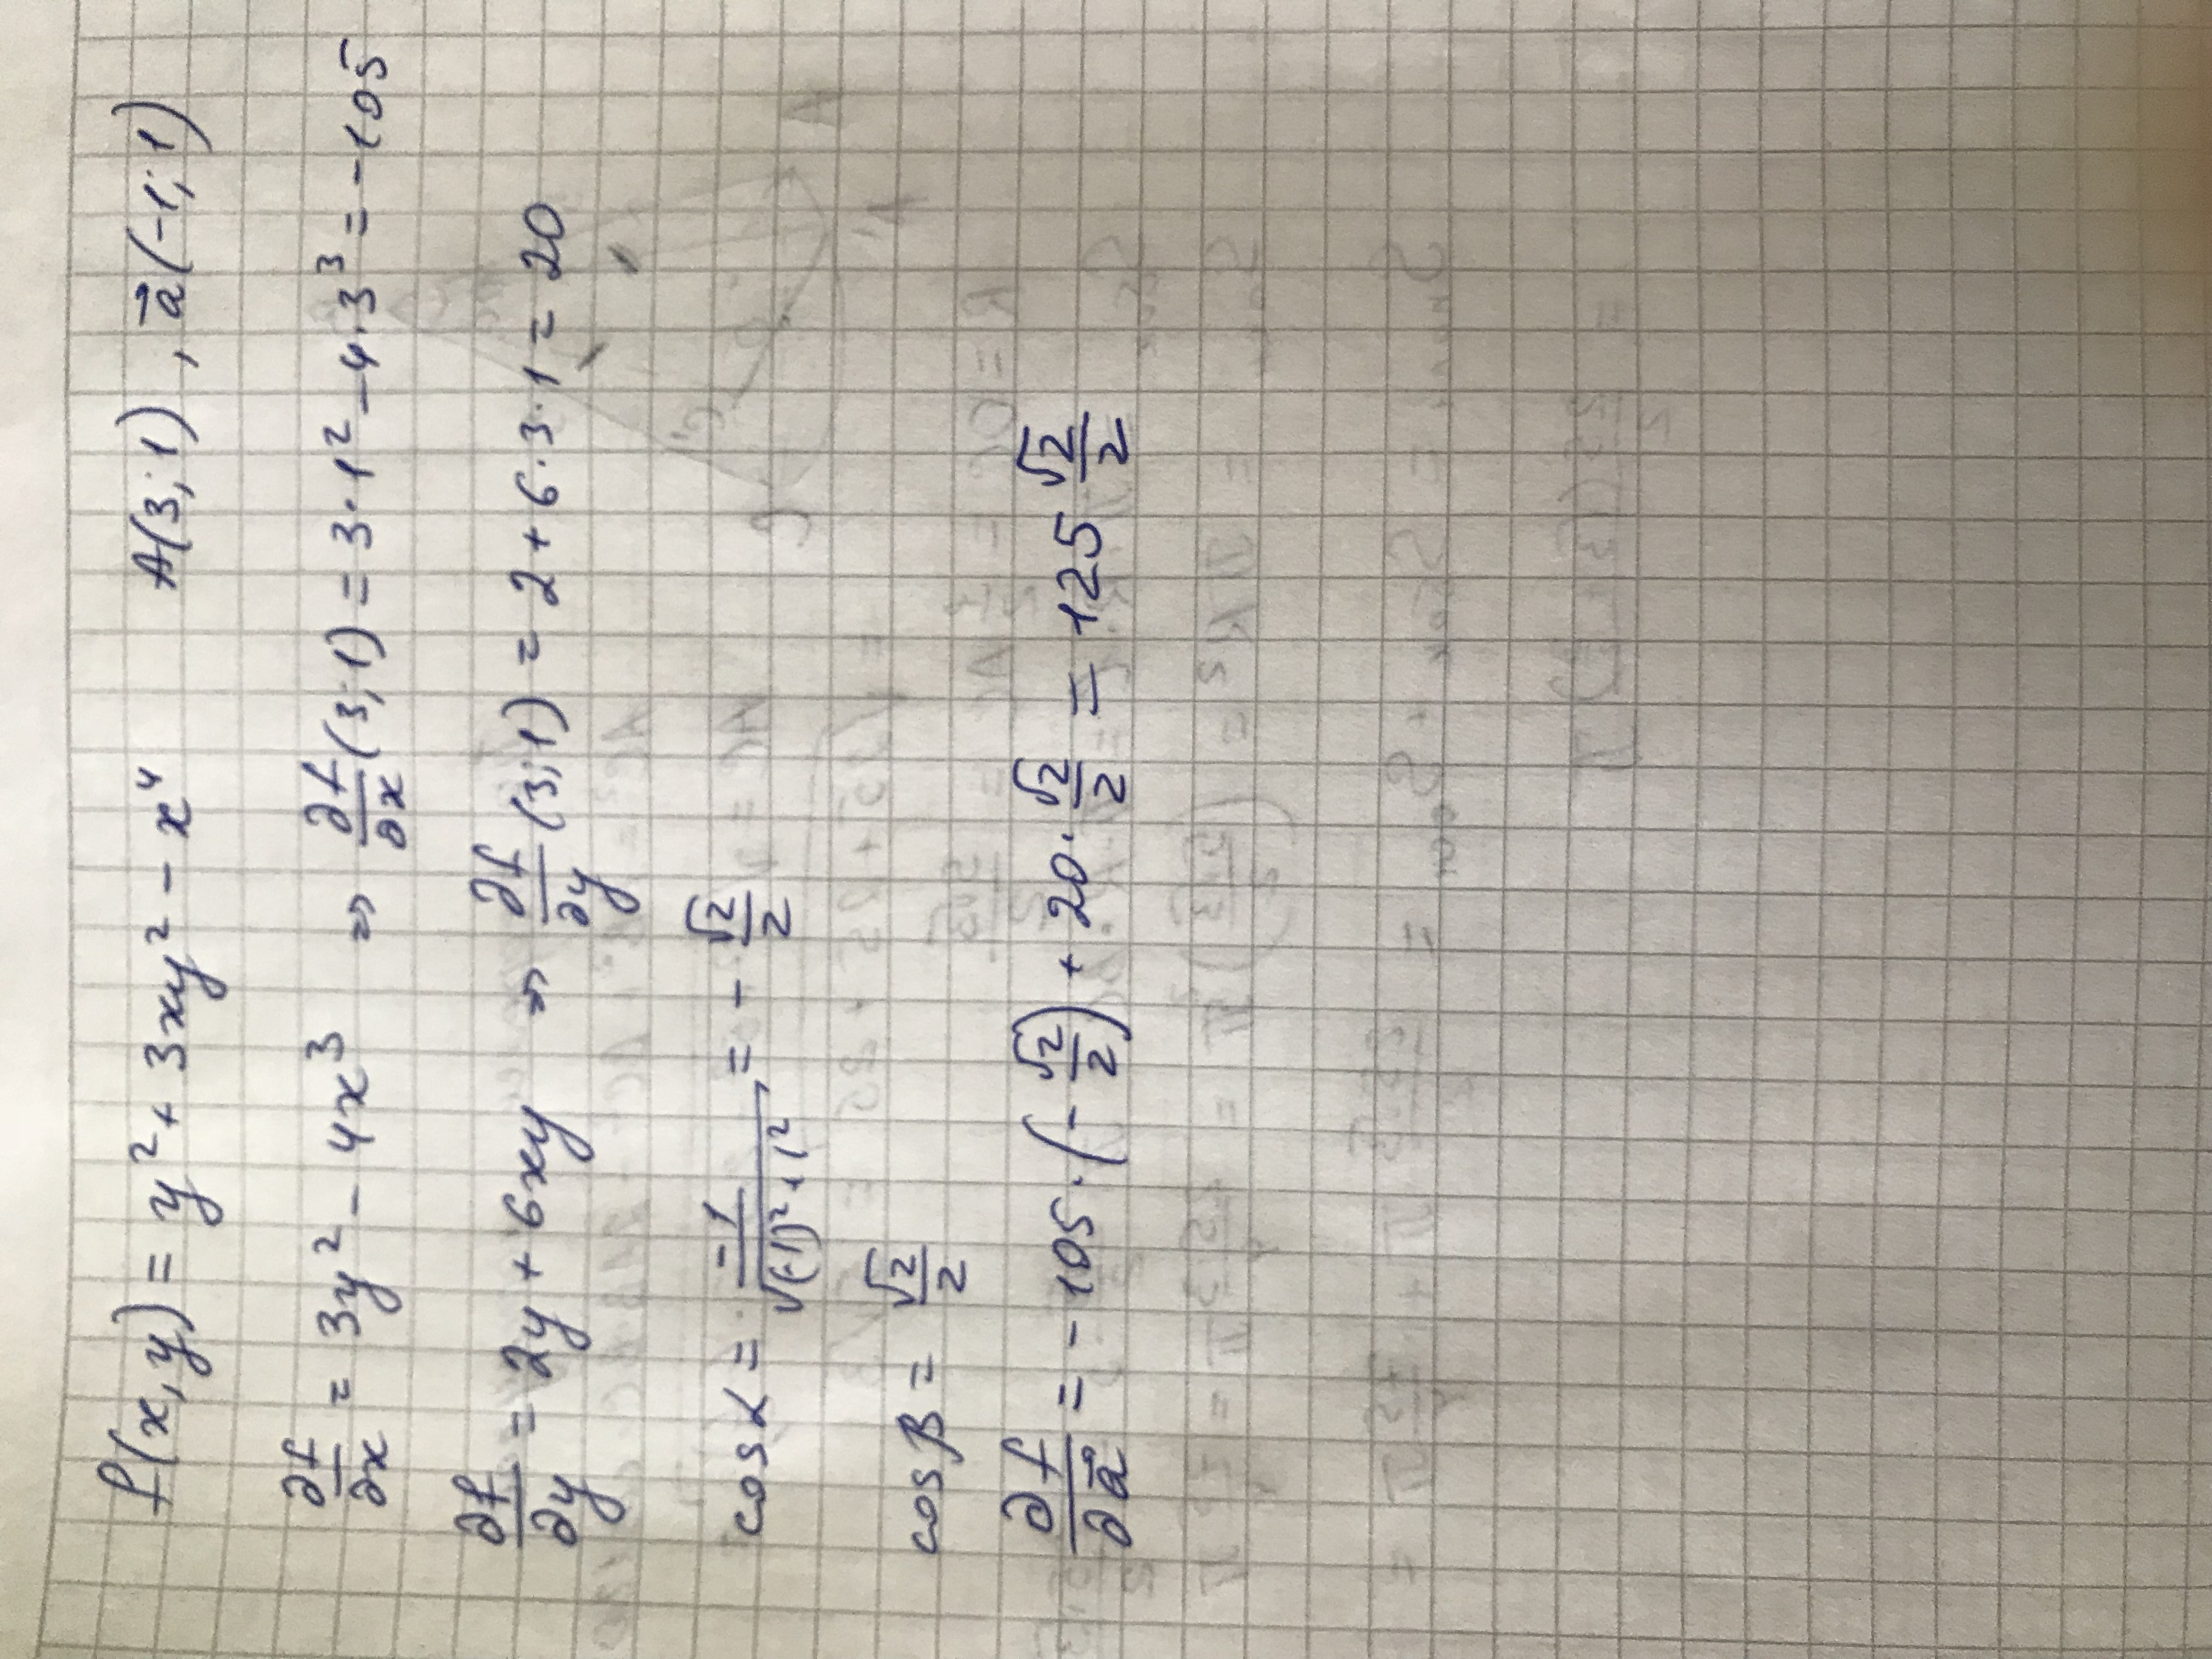 f(x,y) = y² + 3xy² - x⁴ A(3;1), a⃗(-1;1)
∂f/∂x = 3y² - 4x³ ⇒ ∂f/∂x (3;1) = 3·1² - 4·3³ = -105
∂f/∂y = 2y + 6xy ⇒ ∂f/∂y (3;1) = 2 + 6·3·1 = 20
cos α = -1/√((-1)² + 1²) = - √2/2
cos β = √2/2
∂f/∂a⃗ = -105·(- √2/2) + 20·√2/2 = 125 √2/2